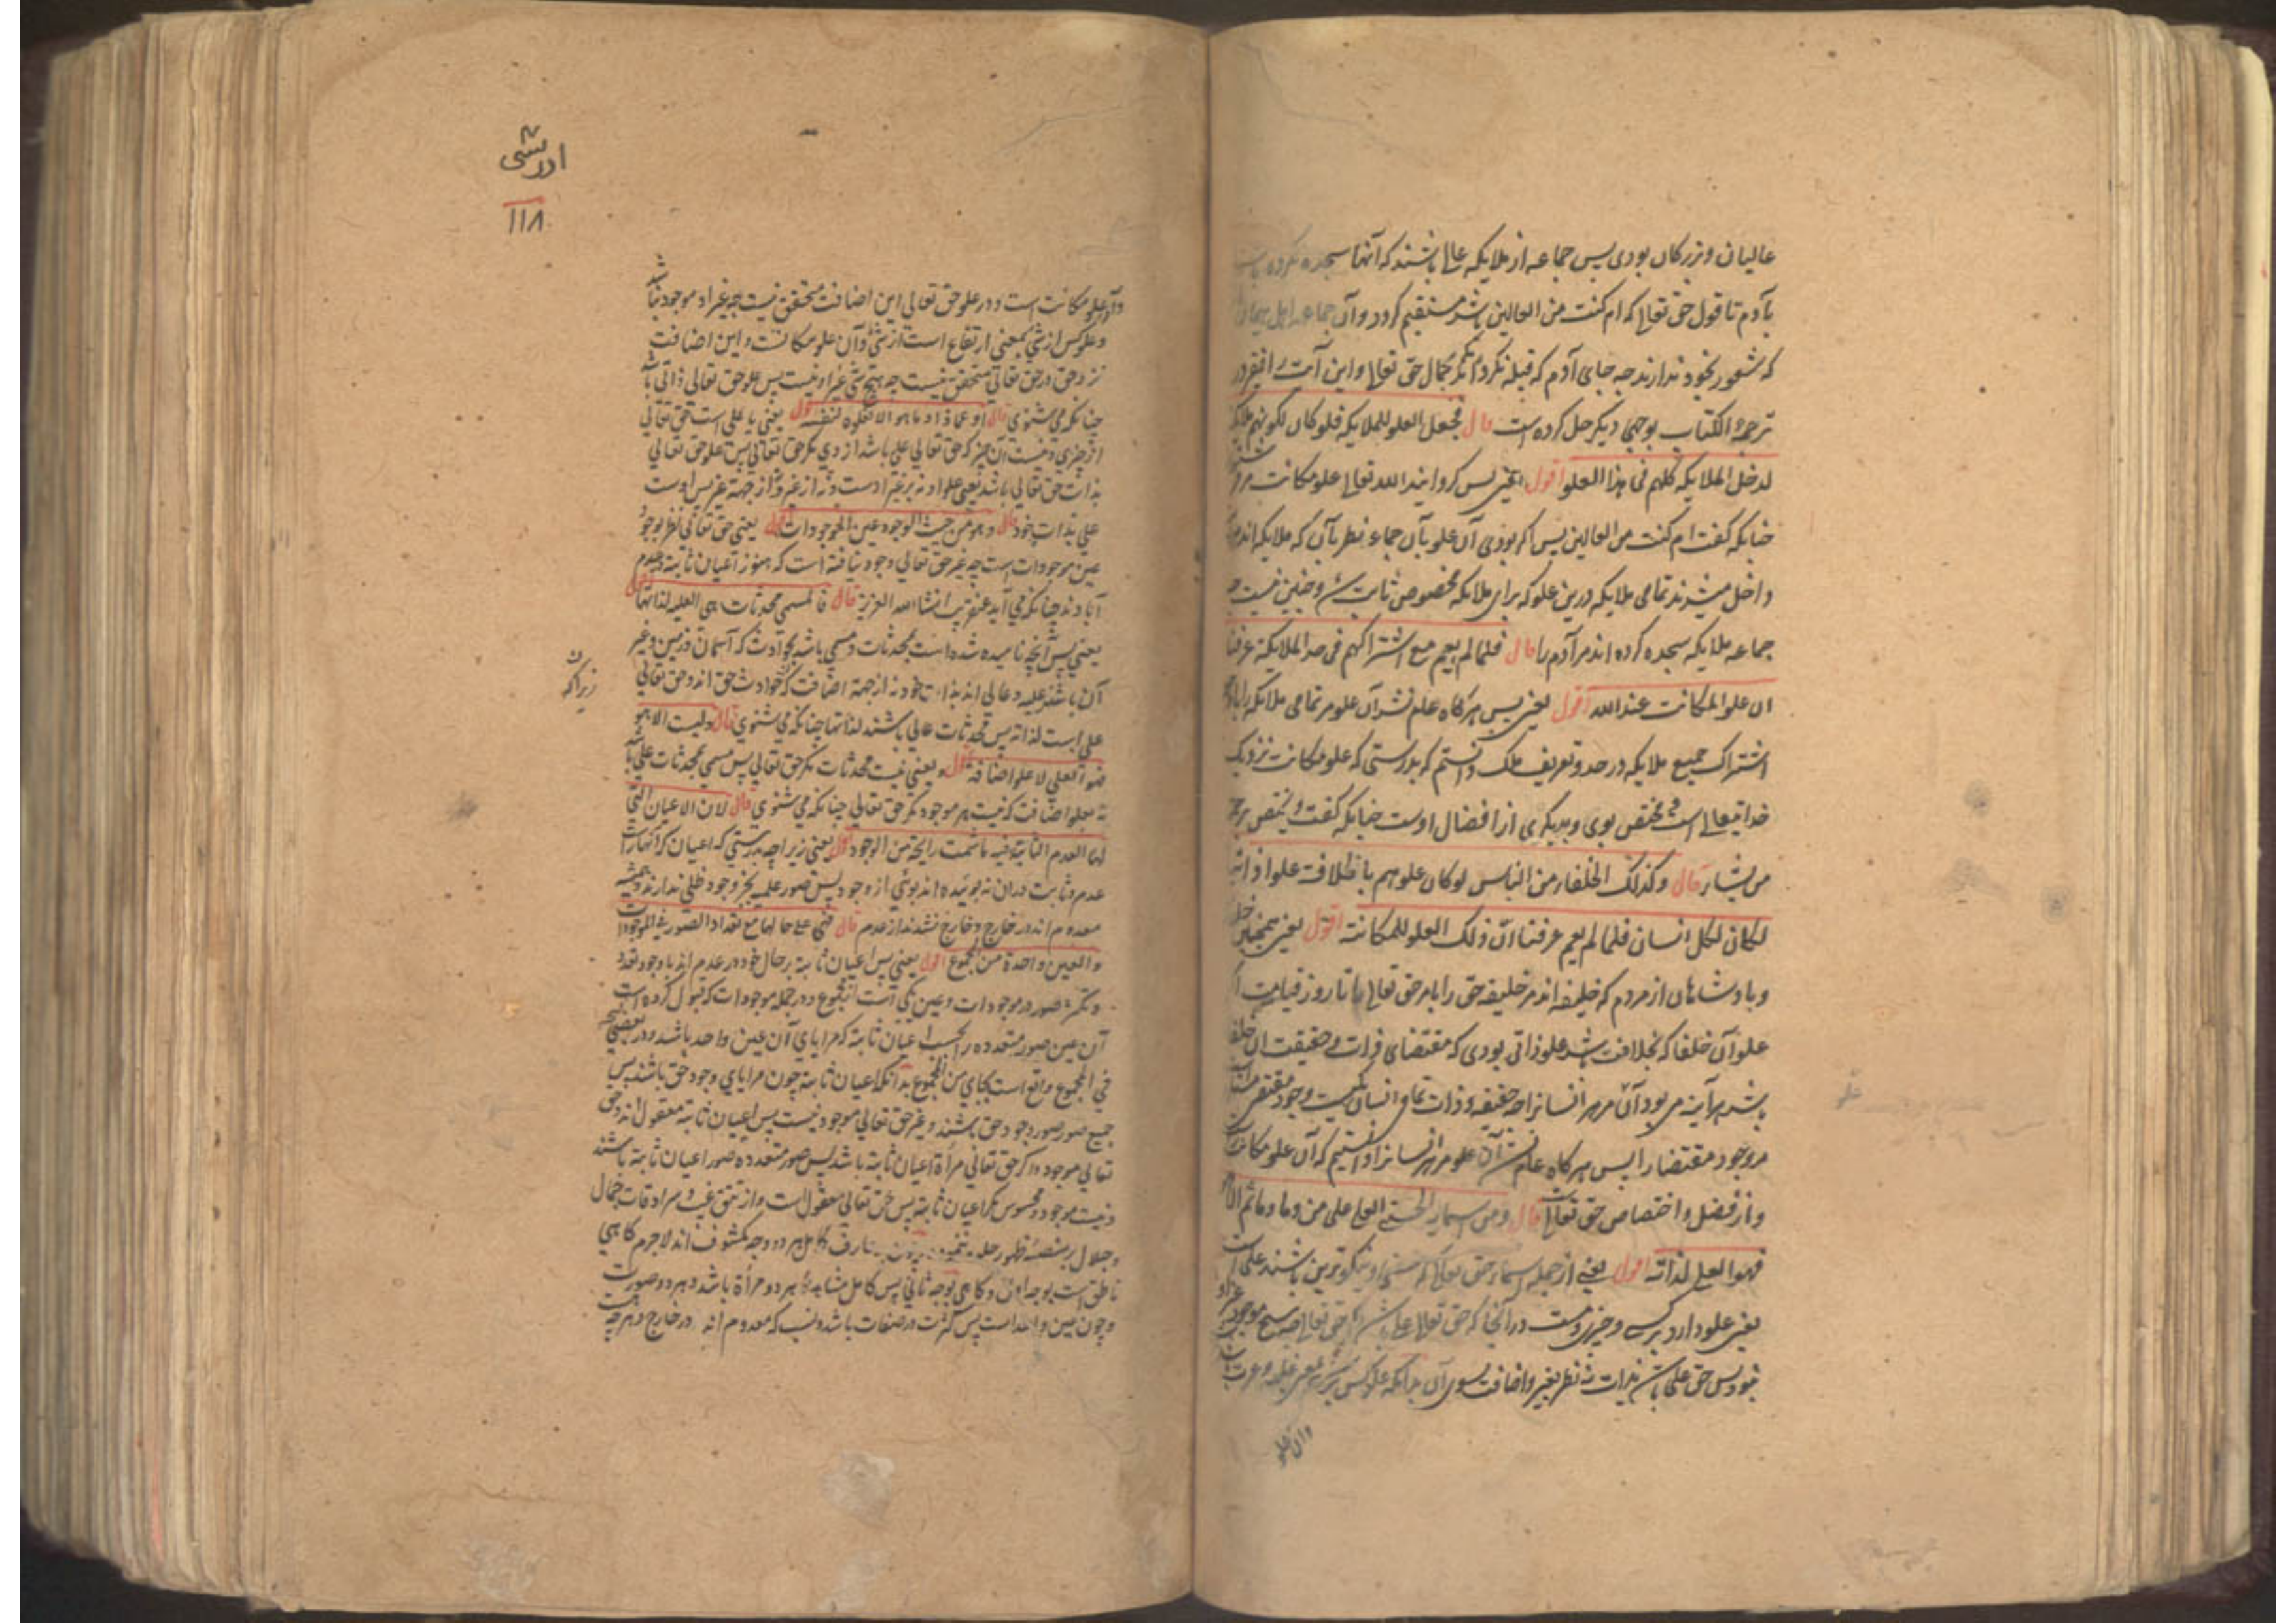 عالیان و بزرگان بودی پس جماعه از ملایکه عالی باشند که آنها سجده نکرده باشند
بآدم تا قول حق تعالی که ام کنت من العالین باشد مستقیم کردد و آن جماعه اهل هیمان
که شعور بخود ندارند چه جای آدم که قبله نکردم مکر جمال حق تعالی و این آیت را فقیر در
ترجمة الکتاب بوجهی دیکر حل کرده است قال فجعل العلو للملایکه فلو کان لکونهم ملایکة
لدخل الملایکه کلهم فی هذا العلو اقول یعنی پس کردانید الله تعالی علو مکانت مر
چنانکه کفت ام کنت من العالین پس اکر بودی آن علو بآن جماعه نظر بآن که ملایکه اند
داخل میشدند تمامی ملایکه درین علو که برای ملایکه مخصوص ثابت شد و چنین نیست چه
جماعه ملایکه سجده کرده اند مر آدم را قال فلما لم یعم مع اشتراکهم فی حد الملایکة عرفنا
ان علو المکانت عند الله اقول یعنی پس هرکاه عام نشد آن علو مر تمامی ملایکه را با
اشتراک جمیع ملایکه در حد و تعریف ملک دانستم که بدرستی که علو مکانت نزدیک
خدایتعالی است که مختص بوی و بدیکری از افضال اوست چنانکه کفت و یختص برحمته
من یشاء قال و کذلک الخلفاء من الناس لو کان علوهم بالخلافت علوا ذاتیا
لکان لکل انسان فلما لم یعم عرفنا ان ذلک العلو للمکانة اقول یعنی همچنین
و پادشاهان از مردم که خلیفه اند مر خلیفه حق را بامر حق تعالی تا روز قیامت اکر
علو آن خلفا که بخلافت باشد علو ذاتی بودی که مقتضای ذات و حقیقت آن خلفا
باشد هر آینه می بود آن مر هر انسانرا چه حقیقة و ذات تمامی انسان یکیست و وجود مقتضی
مر وجود مقتضا را پس هرکاه عام نشد آن علو مر هر انسانرا دانستیم که آن علو مکانت
و از فضل و اختصاص حق تعالی قال و من اسمایه الحسنی العلی علی من و ما و ما ثم الا هو
فهو العلی لذاته اقول یعنی از جمله اسماء حق تعالی که حسنی و نیکوترین باشند علی است
یعنی علو دارد بر کسی و چیزی و نیست در آنجا که حق تعالی علی باشد مکر حق تعالی چه هیچ موجود غیر او
نبود پس حق علی باشد بذات نه نظر بغیر و اضافت بسوی آن بدانکه علو کس بر شی بمعنی غلبه و
وان علو
ادریسی
۱۱۸
وآن علو مکانت است و در علو حق تعالی این اضافت متحقق نیست چه غیر او موجود نباشد
و علو کس از شی بمعنی ارتفاع است از شی و آن علو مکانت و این اضافت
نزد حق در حق تعالی متحقق نیست چه هیچ شی غیر او نیست پس علو حق تعالی ذاتی باشد
چنانکه می شنوی قال او عماذا و ما هو الا هو فعلوه لنفسه اقول یعنی یا علی است حق تعالی
از چیزی و نیست آن چیز که حق تعالی علی باشد از وی مکر حق تعالی پس علو حق تعالی
بذات حق تعالی باشد یعنی علو او نه بر غیر اوست و نه از غیر و از جهة غیر پس اوست
علی بذات خود قال و هو من حیث الوجود عین الموجودات اقول یعنی حق تعالی نظر بوجود
عین موجودات است چه غیر حق تعالی وجود نیافته است که هنوز اعیان ثابته در عدم
آبادند چنانکه می آید عنقریب انشاء الله العزیز قال فالمسمی محدثات هی العلیة لذاتها
یعنی پس آنچه نامیده شده است بمحدثات و مسمی باشد بحوادث که آسمان و زمین و غیر
آن باشند علیه و عالی اند بذات خود نه از جهة اضافت که حوادث حق اند و حق تعالی
زیراکه
علی است لذاته پس محدثات عالی باشند لذاتها چنانکه می شنوی قال و لیست الا هو
فهو العلی لا علو اضافة اقول یعنی نیست محدثات مکر حق تعالی پس مسمی بمحدثات علی باشد
نه بعلو اضافت که نیست هر موجود مکر حق تعالی چنانکه می شنوی قال لان الاعیان التی
لها العدم الثابتة فیه ما شمت رایحة من الوجود اقول یعنی زیرا چه بدرستی که اعیان که آنهارا
عدم و ثابت در آن نه بوئیده اند بوئی از وجود پس صور علمیه بجز وجود ظلی ندارند و همیشه
معدوم اند در خارج و خارج نشدند از عدم قال فهی علی حالها مع تعداد الصور فی الموجودات
و العین واحدة من المجموع اقول یعنی پس اعیان ثابته بر حال خود در عدم اند با وجود تعدد
و تکثر صور در موجودات و عین یکی است از مجموع و در جمله موجودات که قبول کرده است
آن عین صور متعدده را بحسب اعیان ثابته که مرایای آن عین واحد باشد و در بعضی نسخه
فی المجموع واقع است بجای من المجموع بدانکه اعیان ثابته چون مرایای وجود حق باشند پس
جمیع صور صور وجود حق باشند و غیر حق تعالی موجود نیست پس اعیان ثابته معقول اند و حق
تعالی موجود و اکر حق تعالی مرآة اعیان ثابته باشد پس صور متعدده صور اعیان ثابته باشند
و نیست موجود و محسوس مکر اعیان ثابته پس حق تعالی معقول است و از تتق غیب و سرادقات جمال
و جلال بر منصه ظهور عارف کامل هر دو وجه مکشوف اند لاجرم کاهی
ناطق است بوجه اول و کاهی بوجه ثانی پس کامل مشاهده هر دو مرآة باشد و هر دو صورت
و چون عین واحد است پس کثرت در صفات باشد و نسب که معدوم اند در خارج و هر چه